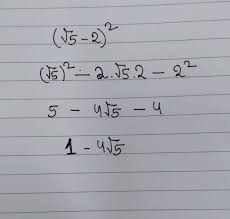 (√5 - 2)²
(√5)² - 2.√5.2 - 2²
5 - 4√5 - 4
1 - 4√5